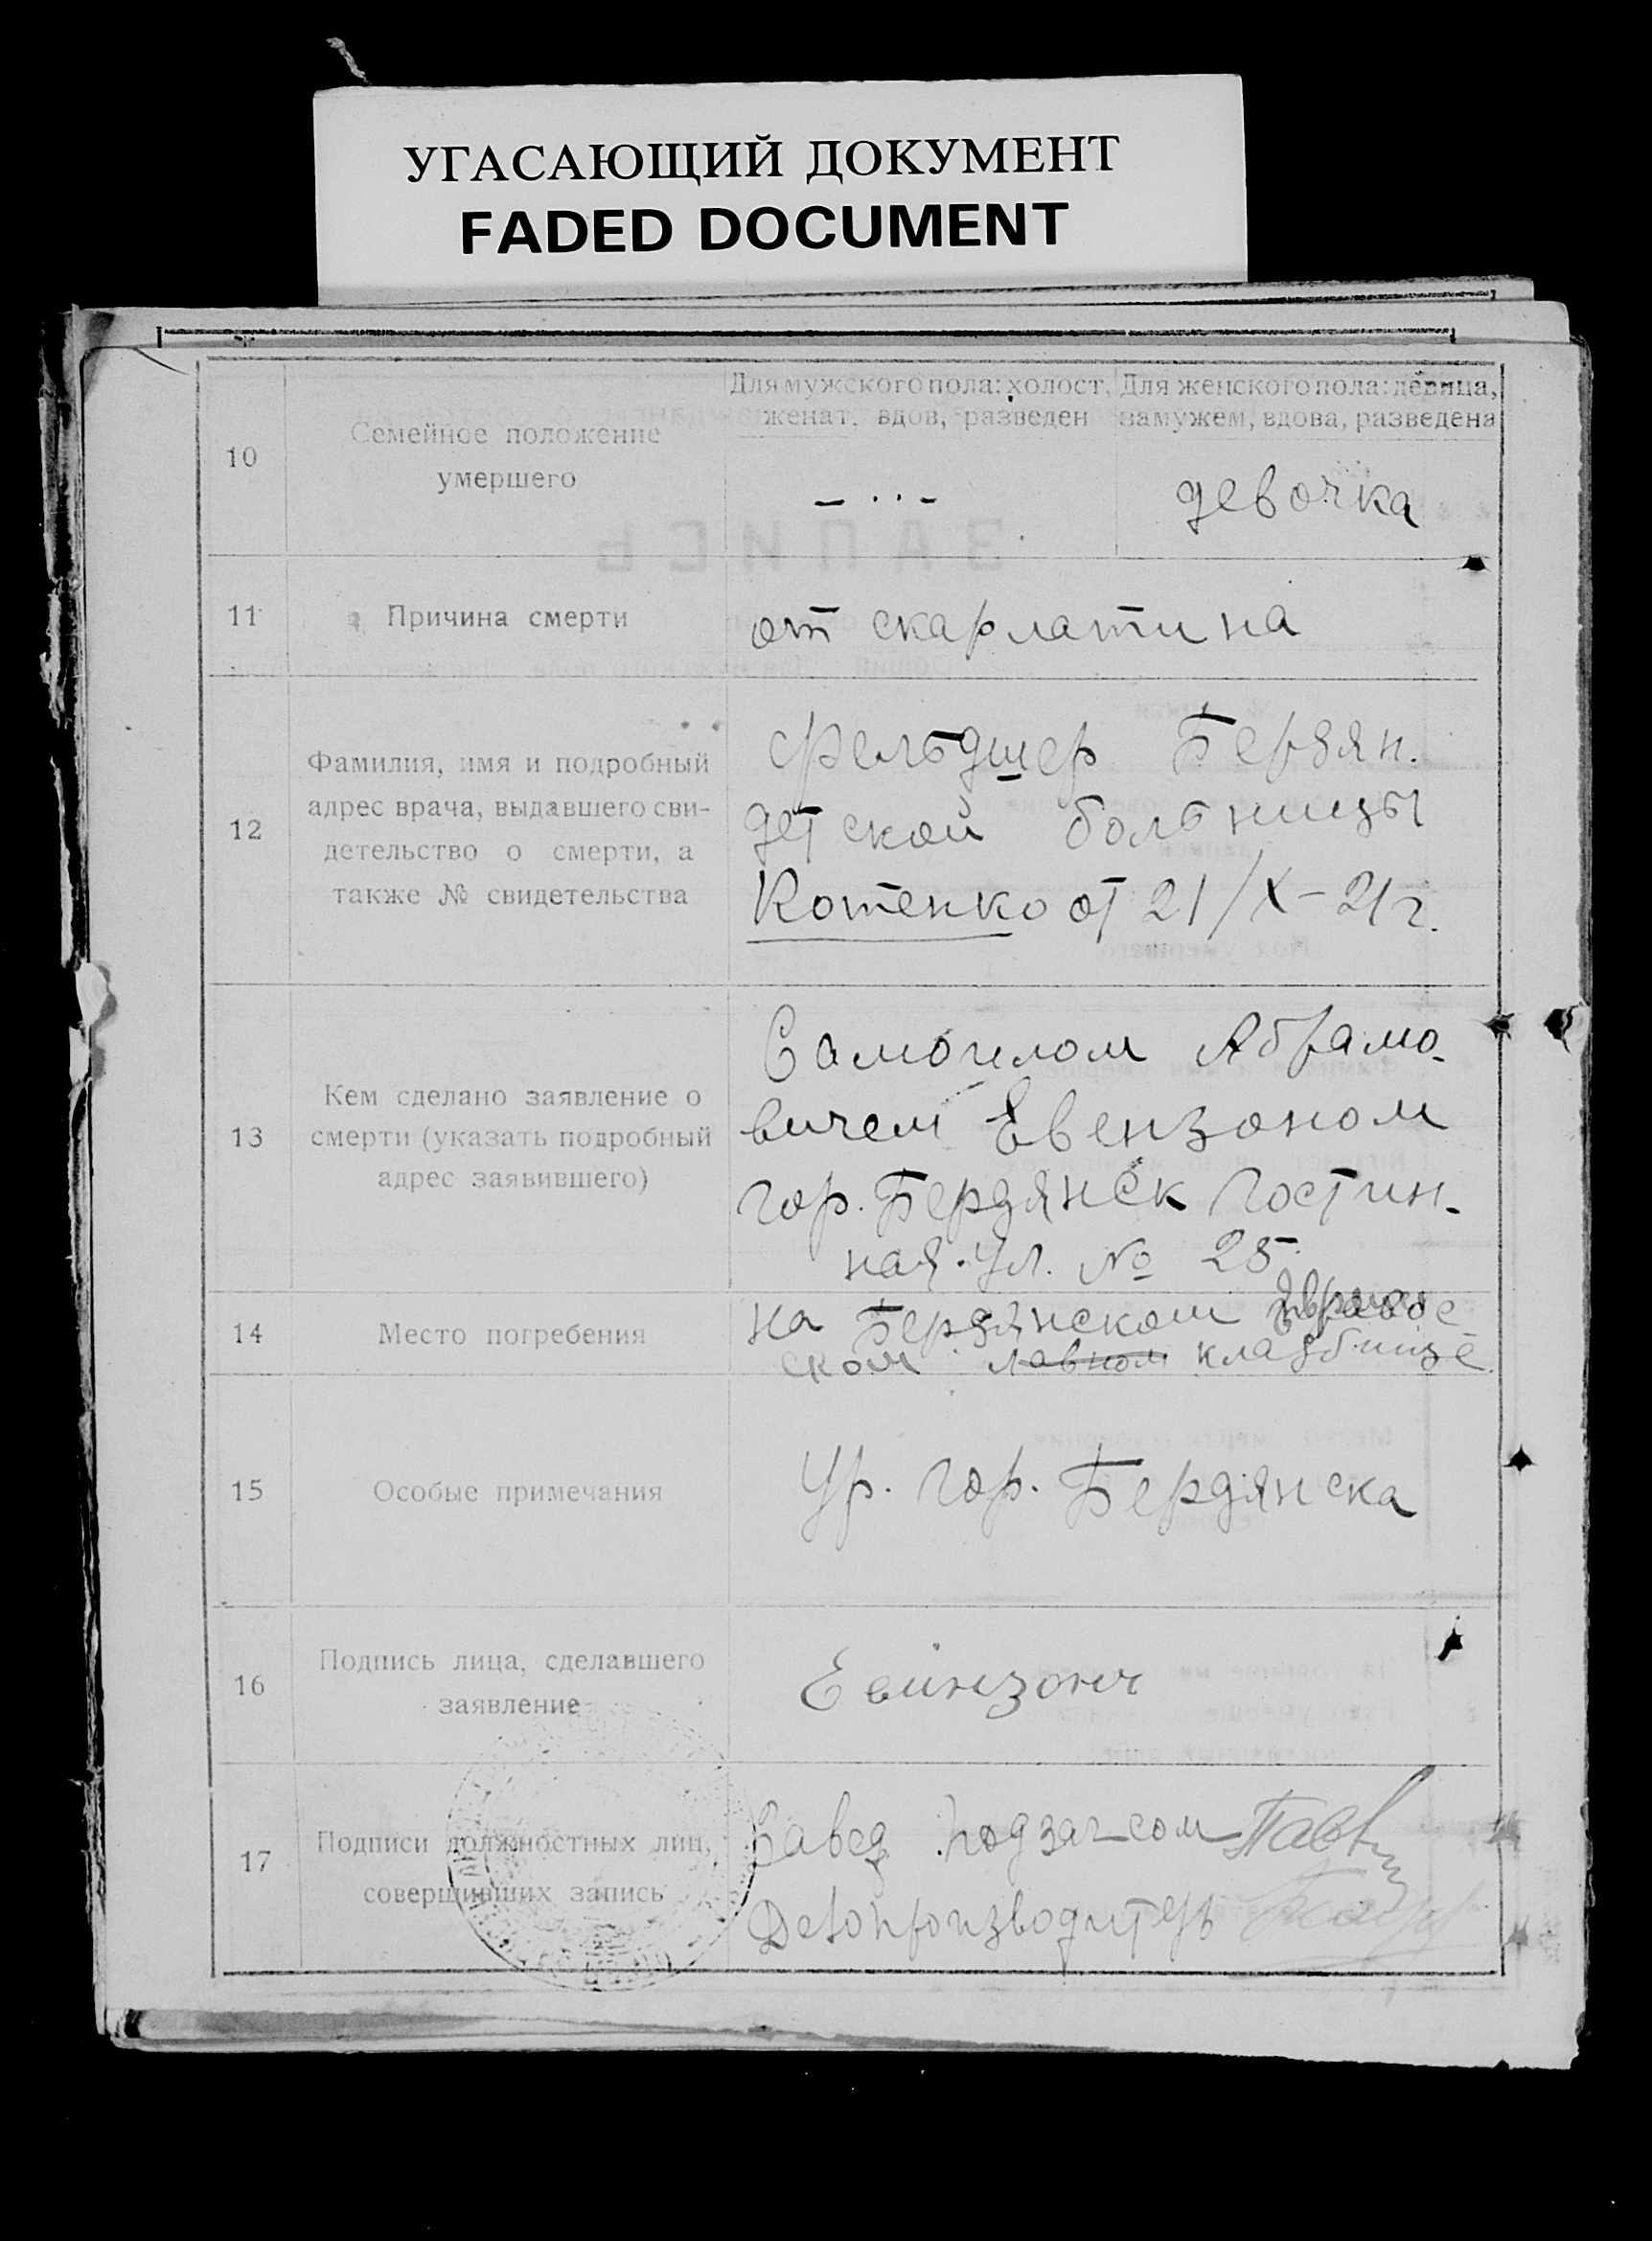 УГАСАЮЩИЙ ДОКУМЕНТ
FADED DOCUMENT
10
Семейное положение
умершего
Для мужского пола: холост,
женат, вдов, разведен
Для женского пола: девица,
замужем, вдова, разведена
девочка
11
Причина смерти
от скарлатина
12
Фамилия, имя и подробный
адрес врача, выдавшего сви-
детельство о смерти, а
также № свидетельства
Фельдшер Бердян.
детской больницы
Котенко от 21/X-21г.
13
Кем сделано заявление о
смерти (указать подробный
адрес заявившего)
Самоилом Абрамо-
вичем Евензоном
гор. Бердянск Гостин-
ная ул. № 25
14
Место погребения
на Бердянском
ском лавном кладбище
15
Особые примечания
Ур. гор. Бердянска
16
Подпись лица, сделавшего
заявление
17
Подписи должностных лиц,
совершивших запись
Завед. подзагсом
Делопроизводитель